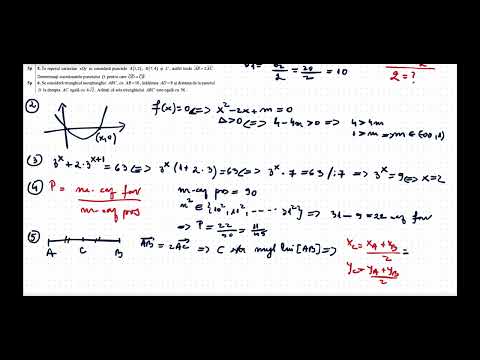 5p 5. În reperul cartezian xOy se consideră punctele A(1,2), B(7,4) și C, astfel încât AB = 2AC.
Determinați coordonatele punctului D pentru care
5p 6. Se consideră triunghiul ascuțitunghic ABC, cu AB = 10, înălțimea AD = 8 și distanța de la punctul
D la dreapta AC egală cu 4√2. Arătați că aria triunghiului ABC este egală cu 56.
2 = 20/2 = 10
2 = ?
② (x₁,0) f(x)=0 <=> x²-2x+m=0
Δ>0 <=> 4-4m>0 <=> 4>4m
1>m => m∈(-∞,1)
③ 3^x + 2·3^(x+1) = 63 <=> 3^x(1+2·3) = 63 <=> 3^x·7 = 63 /:7 => 3^x = 9 <=> x=2
④ P = nr. caz fav / nr caz pos
nr caz pos = 90
n² ∈ {10², 11², ..... 31²} => 31-9 = 22 caz fav
=> P = 22/90 = 11/45
⑤ A C B AB = 2AC => C este mijl lui [AB] => x_C = (x_A + x_B)/2 =
y_C = (y_A + y_B)/2